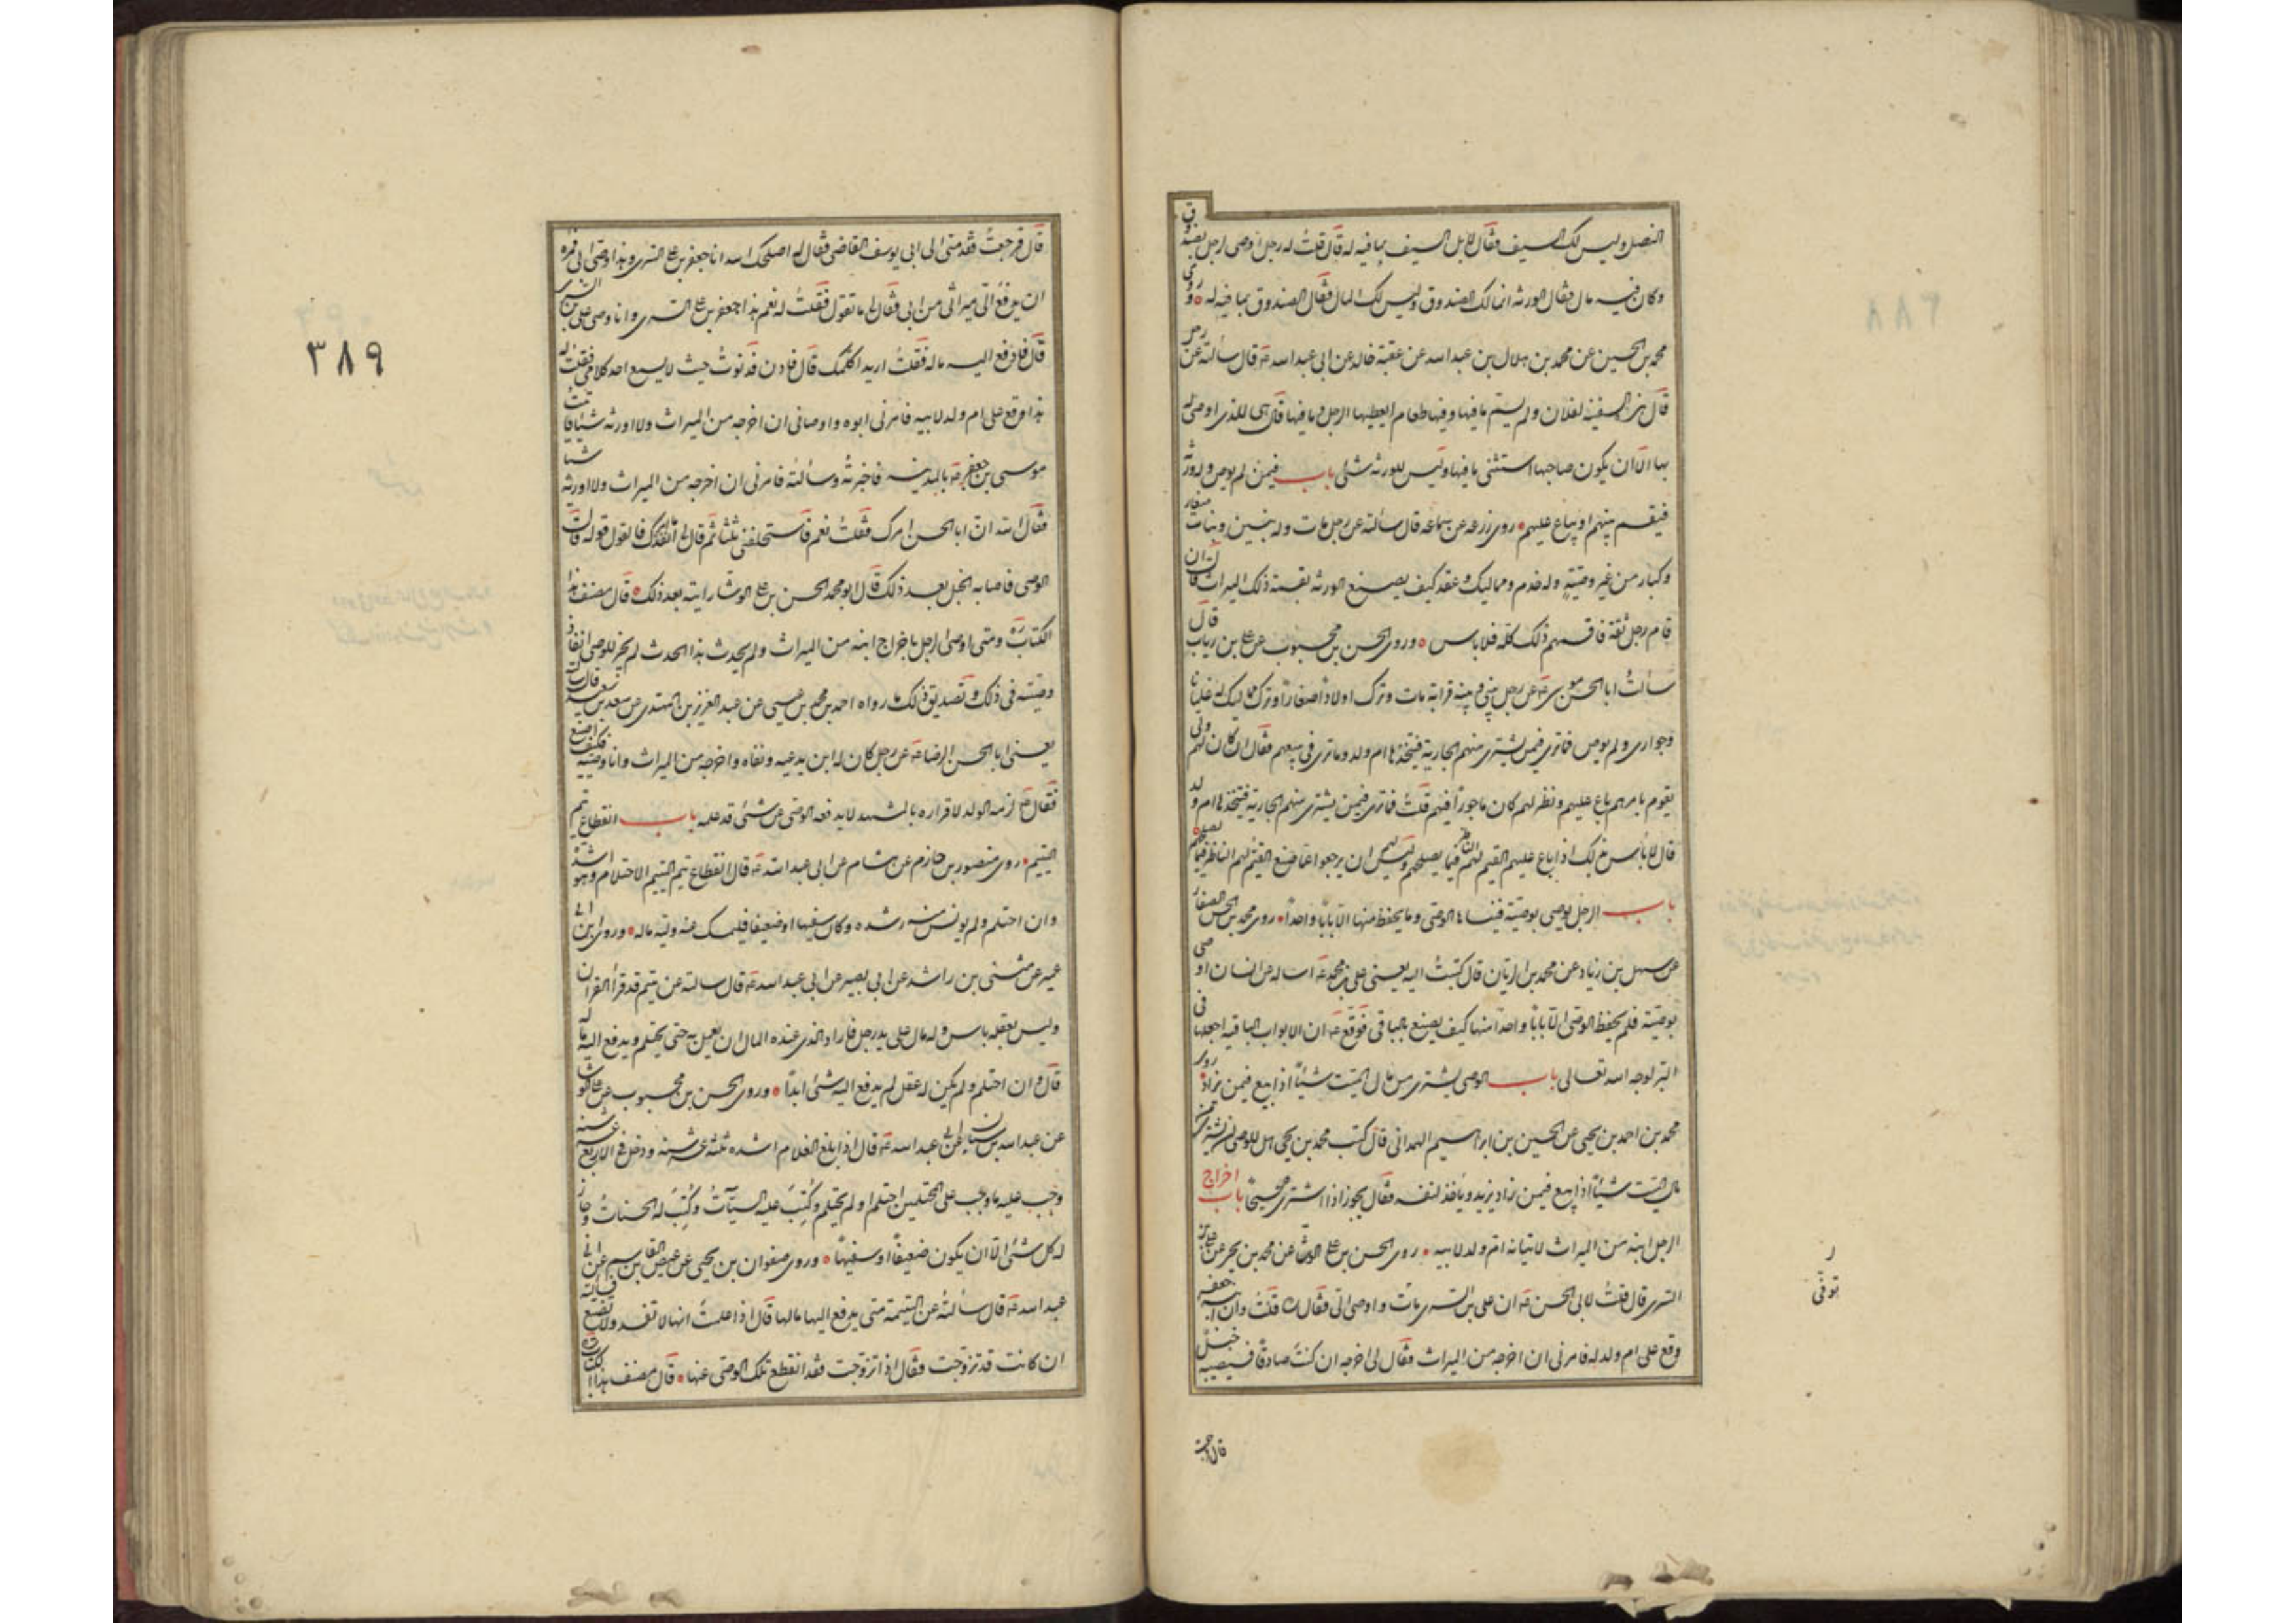 النصل وليس لك السيف فقال لا بل السيف بما فيه له قال قلت له رجل اوصى لرجل بصندوق
وكان فيه مال فقال الورثة انما لك الصندوق وليس لك المال فقال الصندوق بما فيه له وروى
محمد بن الحسين عن محمد بن هلال بن عبد الله عن عقبة خالد عن ابى عبد الله ع قال سألته عن رجل
قال هذه السفينة لفلان ولم يسم ما فيها وفيها طعام ايعطيها الرجل وما فيها قال هى للذى اوصى له
بها الا ان يكون صاحبها استثنى ما فيها وليس للورثة شئ باب فيمن لم يوص وله ورثة
فيقسم بينهم او يباع عليهم روى زرعه عن سماعه قال سألته عن رجل مات وله بنين وبنات صغار
وكبار من غير وصيّة وله خدم ومماليك وعقد كيف يصنع الورثه بقسمة ذلك الميراث قال ان
قام رجل ثقة قاسمهم ذلك كله فلا باس وروى الحسن بن محبوب عن على بن رياب قال
سألت ابا الحسن موسى ع عن رجل بينى وبينه قرابة مات وترك اولاداً صغاراً وترك مماليك له غلمانا
وجوارى ولم يوص فما ترى فيمن يشترى منهم الجارية فيتخذها ام ولد وما ترى فى بيعهم فقال ان كان لهم ولى
يقوم بامرهم باع عليهم ونظر لهم كان ماجوراً فيهم قلت فما ترى فيمن يشترى منهم الجارية فيتخذها ام ولد
قال لا بأس بذلك اذا باع عليهم القيم لهم الناظر فيما يصلحهم وليس لهم ان يرجعوا عما صنع القيم لهم الناظر فيما يصلحهم
باب الرجل يوصى بوصيّة فينساها الوصىّ وما يحفظ منها الا بابًا واحداً روى محمد بن الحسن الصفار
عن سهل بن زياد عن محمد بن الريان قال كتبت اليه يعنى على بن محمد ع اساله عن انسان اوصى
بوصيّة فلم يحفظ الوصىّ الا بابًا واحداً منها كيف يصنع بالباقى فوقّع ع ان الابواب الباقيه اجعلها فى
البر لوجه الله تعالى باب الوصى يشترى من مال الميّت شيئاً اذا بيع فيمن زاد روى
محمد بن احمد بن يحيى عن الحسين بن ابراهيم الهمدانى قال كتب محمد بن يحيى هل للوصى ان يشترى من
مال الميّت شيئاً اذا بيع فيمن زاد يزيد ويأخذ لنفسه فقال يجوز اذا اشترى صحيحًا باب اخراج
الرجل ابنه من الميراث لاتيانه ام ولد لابيه روى الحسن بن على الوشا عن محمد بن يحيى عن على بن
السرى قال قلت لابى الحسن ع ان على بن السرى مات واوصى الىّ فقال قلت وان ابنه جعفر
وقع على ام ولد له فامرنى ان اخرجه من الميراث فقال لى اخرجه ان كنت صادقًا فسيصيبه خبل
ر
توفّى
قال فرجعت
٣٨٩
قال فرجعت فقدمنى الى ابى يوسف القاضى فقال له اصلحك الله انا جعفر بن على السرى وهذا وصى ابى فمره
ان يدفع الىّ ميراثى من ابى فقال ما تقول فقلت له نعم هذا جعفر بن على السرى وانا وصى على بن السرى
قال فادفع اليه ماله فقلت اريد اكلّمك قال فادن فدنوت حيث لا يسمع احد كلامى فقلت له
هذا وقع على ام ولد لابيه فامرنى ابوه واوصانى ان اخرجه من الميراث ولا اورثه شيئا فاتيت
موسى بن جعفر ع بالمدينه فاخبرته وسألته فامرنى ان اخرجه من الميراث ولا اورثه شيئا
فقال الله ان ابا الحسن امرك فقلت نعم فاستحلفنى ثلثا ثم قال انفذ ما امرك فالقول قوله قال
الوصى فاصابه الخبل بعد ذلك قال ابو محمد الحسن بن على الوشّا رايته بعد ذلك قال مصنف هذا
الكتاب ره ومتى اوصى الرجل باخراج ابنه من الميراث ولم يحدث هذا الحدث لم يجز للوصى انفاذ
وصيّته فى ذلك وتصديق ذلك ما رواه احمد بن محمد بن عيسى عن عبد العزيز بن المهتدى عن سعد بن سعيد قال سألته
يعنى ابا الحسن الرضا ع عن رجل كان له ابن يدعيه ونفاه واخرجه من الميراث وانا وصيّه فكيف اصنع
فقال ع لزمه الولد لاقراره بالمشهد لا يدفعه الوصى عن شئ قد علمه باب انقطاع يتم
اليتيم روى منصور بن حازم عن هشام عن ابى عبد الله ع قال انقطاع يتم اليتيم الاحتلام وهو اشدّه
وان احتلم ولم يونس منه رشده وكان سفيها او ضعيفا فليمسك عنه وليه ماله وروى ابن ابى
عمير عن مثنى بن راشد عن ابى بصير عن ابى عبد الله ع قال سالته عن يتيم قد قرأ القران
وليس بعقله باس وله مال على يد رجل فاراد الذى عنده المال ان يعمل به حتى يحتلم ويدفع اليه ماله
قال وان احتلم ولم يكن له عقل لم يدفع اليه شئ ابدًا وروى الحسن بن محبوب عن على الوشا
عن عبد الله بن سنان عن ابى عبد الله ع قال اذا بلغ الغلام اشده ثلثة عشر سنه ودخل فى الاربع عشر سنه
وجب عليه ما وجب على المحتلمين احتلم او لم يحتلم وكُتِبَ عليه السيّآت وكُتِبَ له الحسنات وجاز
له كل شئ الا ان يكون ضعيفًا او سفيهًا وروى صفوان بن يحيى عن عيص بن القاسم عن ابى
عبد الله ع قال سألته عن اليتيمة متى يدفع اليها مالها قال اذا علمت انها لا تفسد ولا تضيع فسالته
ان كانت قد تزوّجت فقال اذا تزوّجت فقد انقطع تلك الوصى عنها قال مصنف هذا الكتاب ره